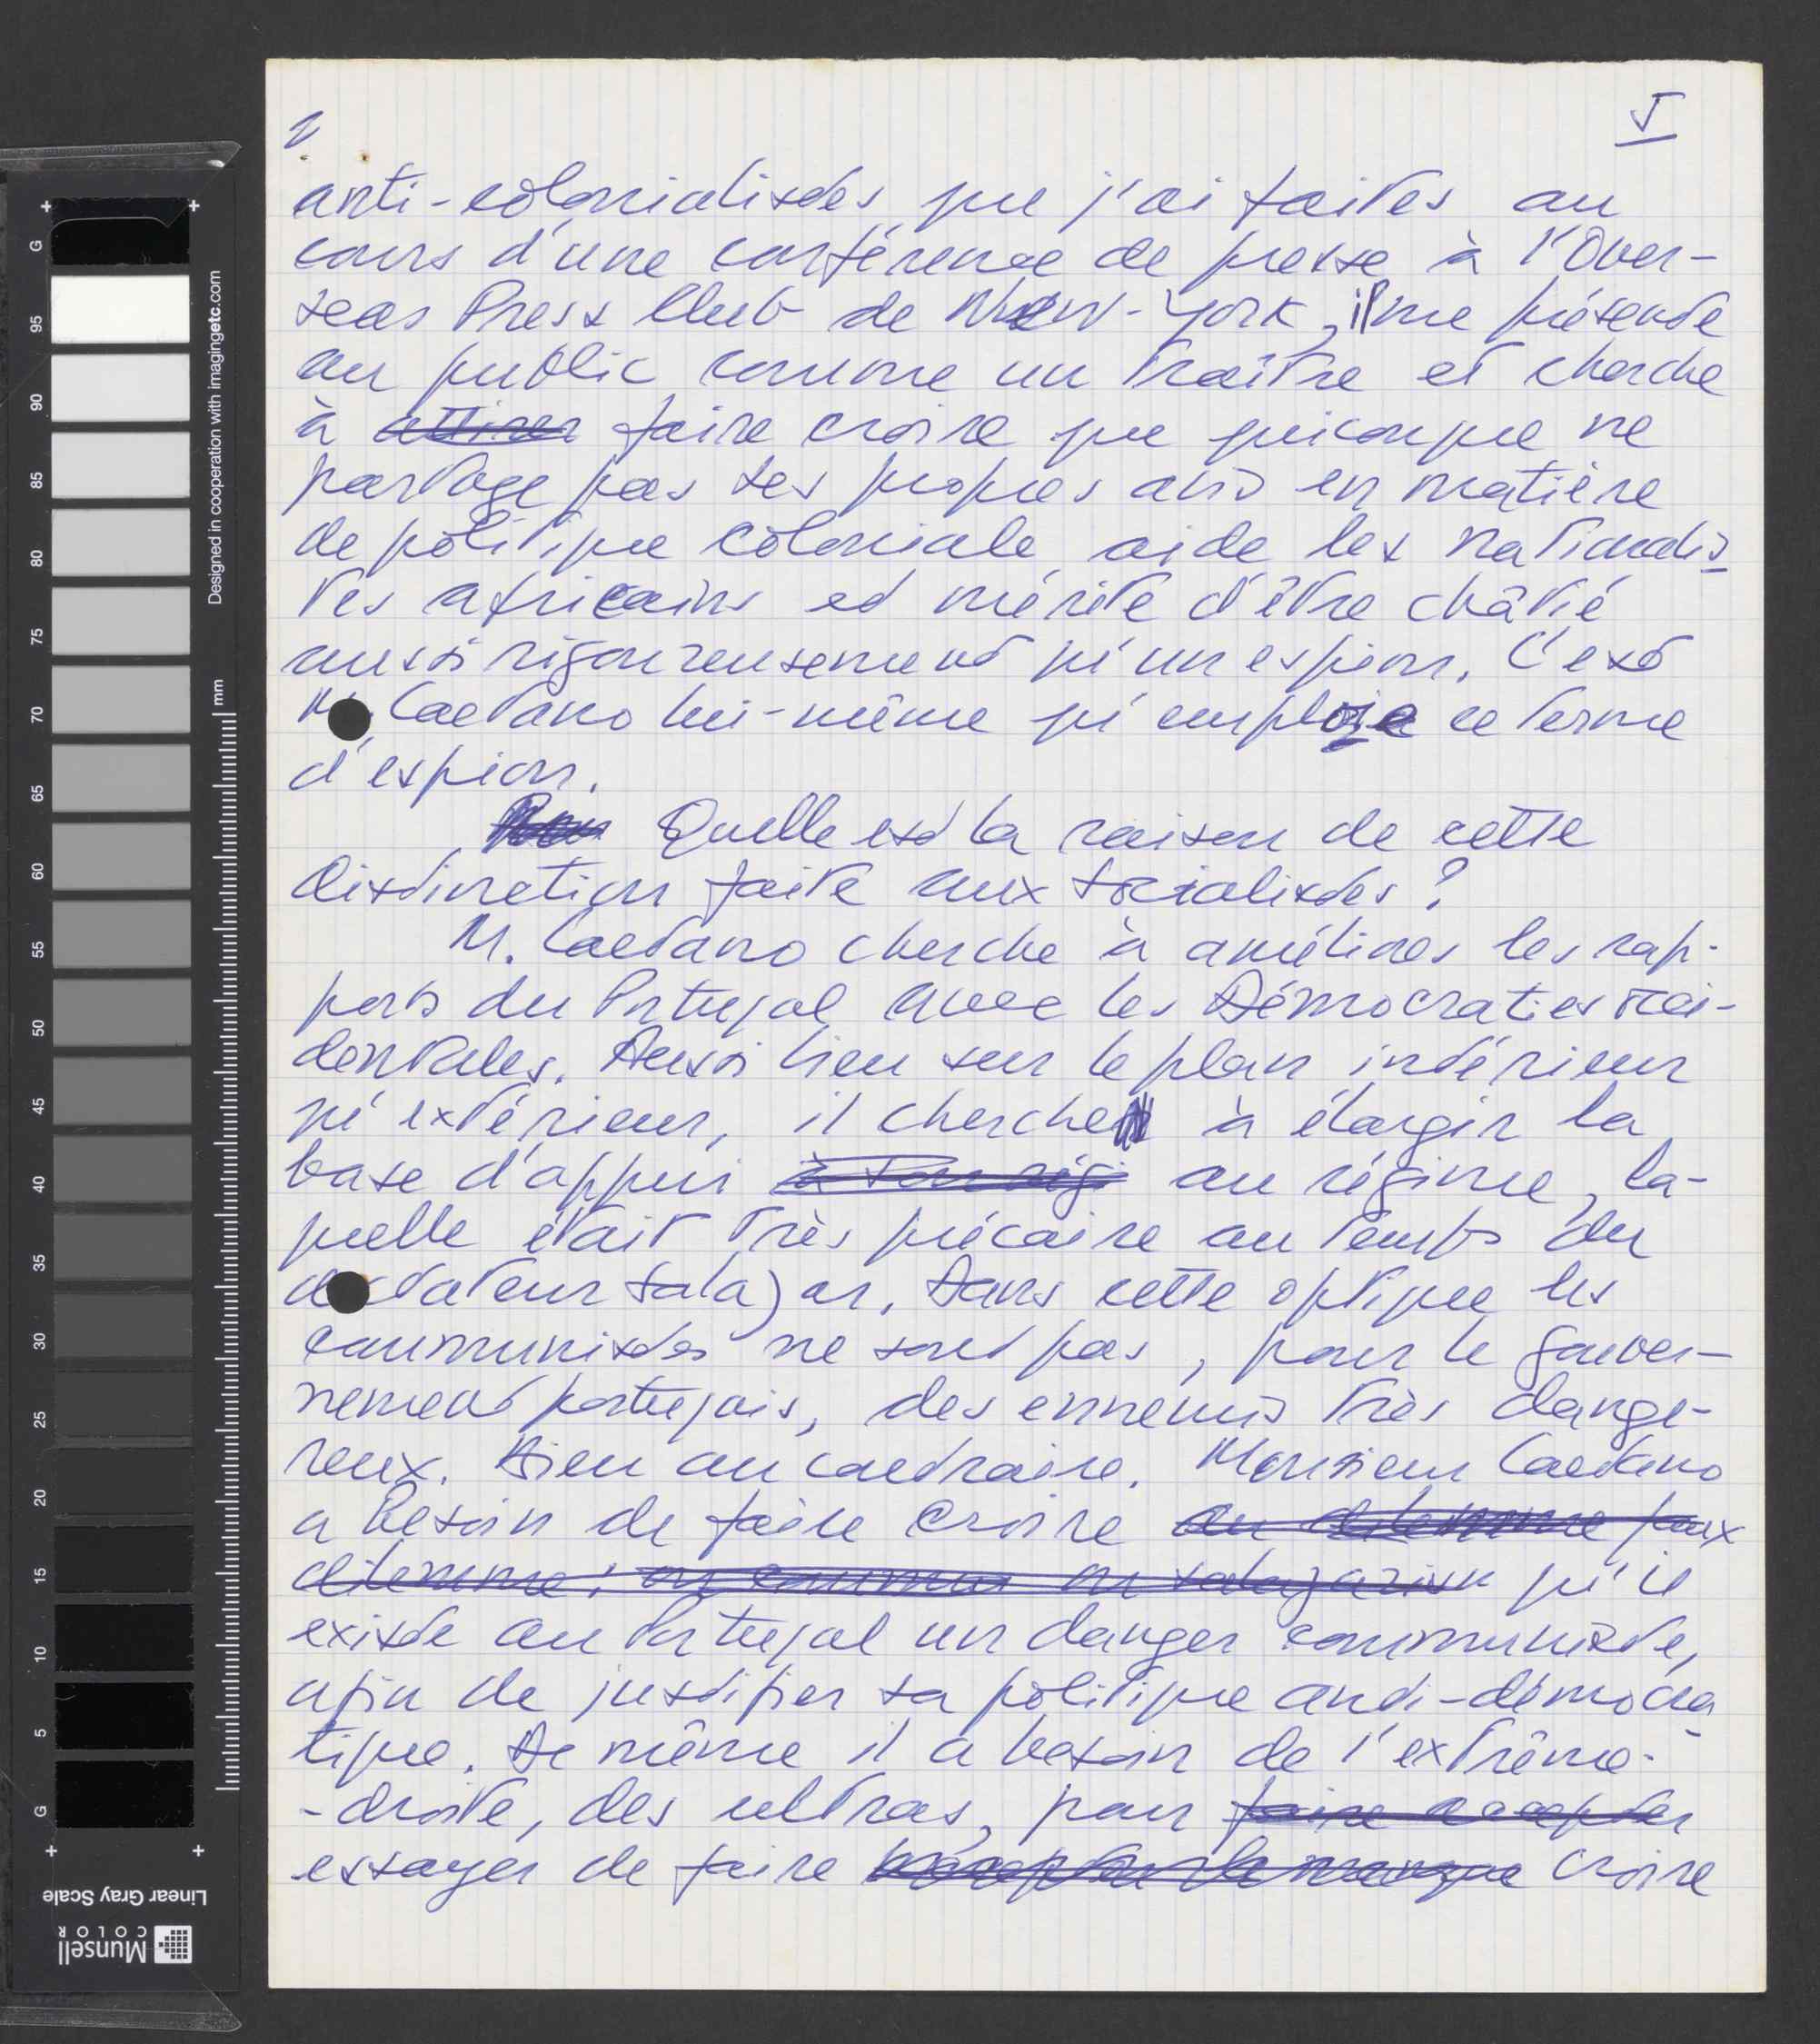 5
anti-colonialistes que j'ai faites au
cours d'une conférence de presse à l'Over-
seas Press Club de New-York, il me présente
au public comme un traître et cherche
à attirer faire croire que quiconque ne
partage pas ses propres avis en matière
de politique coloniale aide les nationalis-
tes africains et mérite d'être châtié
aussi rigoureusement qu'un espion. C'est
M. Caetano lui-même qui emploie ce terme
d'espion.
Quelle est la raison de cette
distinction faite aux socialistes ?
M. Caetano cherche à améliorer les rap-
ports du Portugal avec les Démocraties occi-
dentales. Aussi bien sur le plan intérieur
qu'extérieur, il cherche à élargir la
base d'appui à son régi au régime, la-
quelle était très précaire au temps du
dictateur Salazar. Dans cette optique les
communistes ne sont pas, pour le gouver-
nement portugais, des ennemis très dange-
reux. Bien au contraire. Monsieur Caetano
a besoin de faire croire au dilemme faux
dilemme: ou commun ou salazarism qu'il
existe au Portugal un danger communiste,
afin de justifier sa politique anti-démocra-
tique. De même il a besoin de l'extrême-
-droite, des ultras, pour faire accepter
essayer de faire croire
Designed in cooperation with imagingetc.com
mm
G 95 90 85 80 75 70 65 60 55 50 45 40 35 30 25 20 15 10 5 G
Linear Gray Scale
Munsell
COLOR